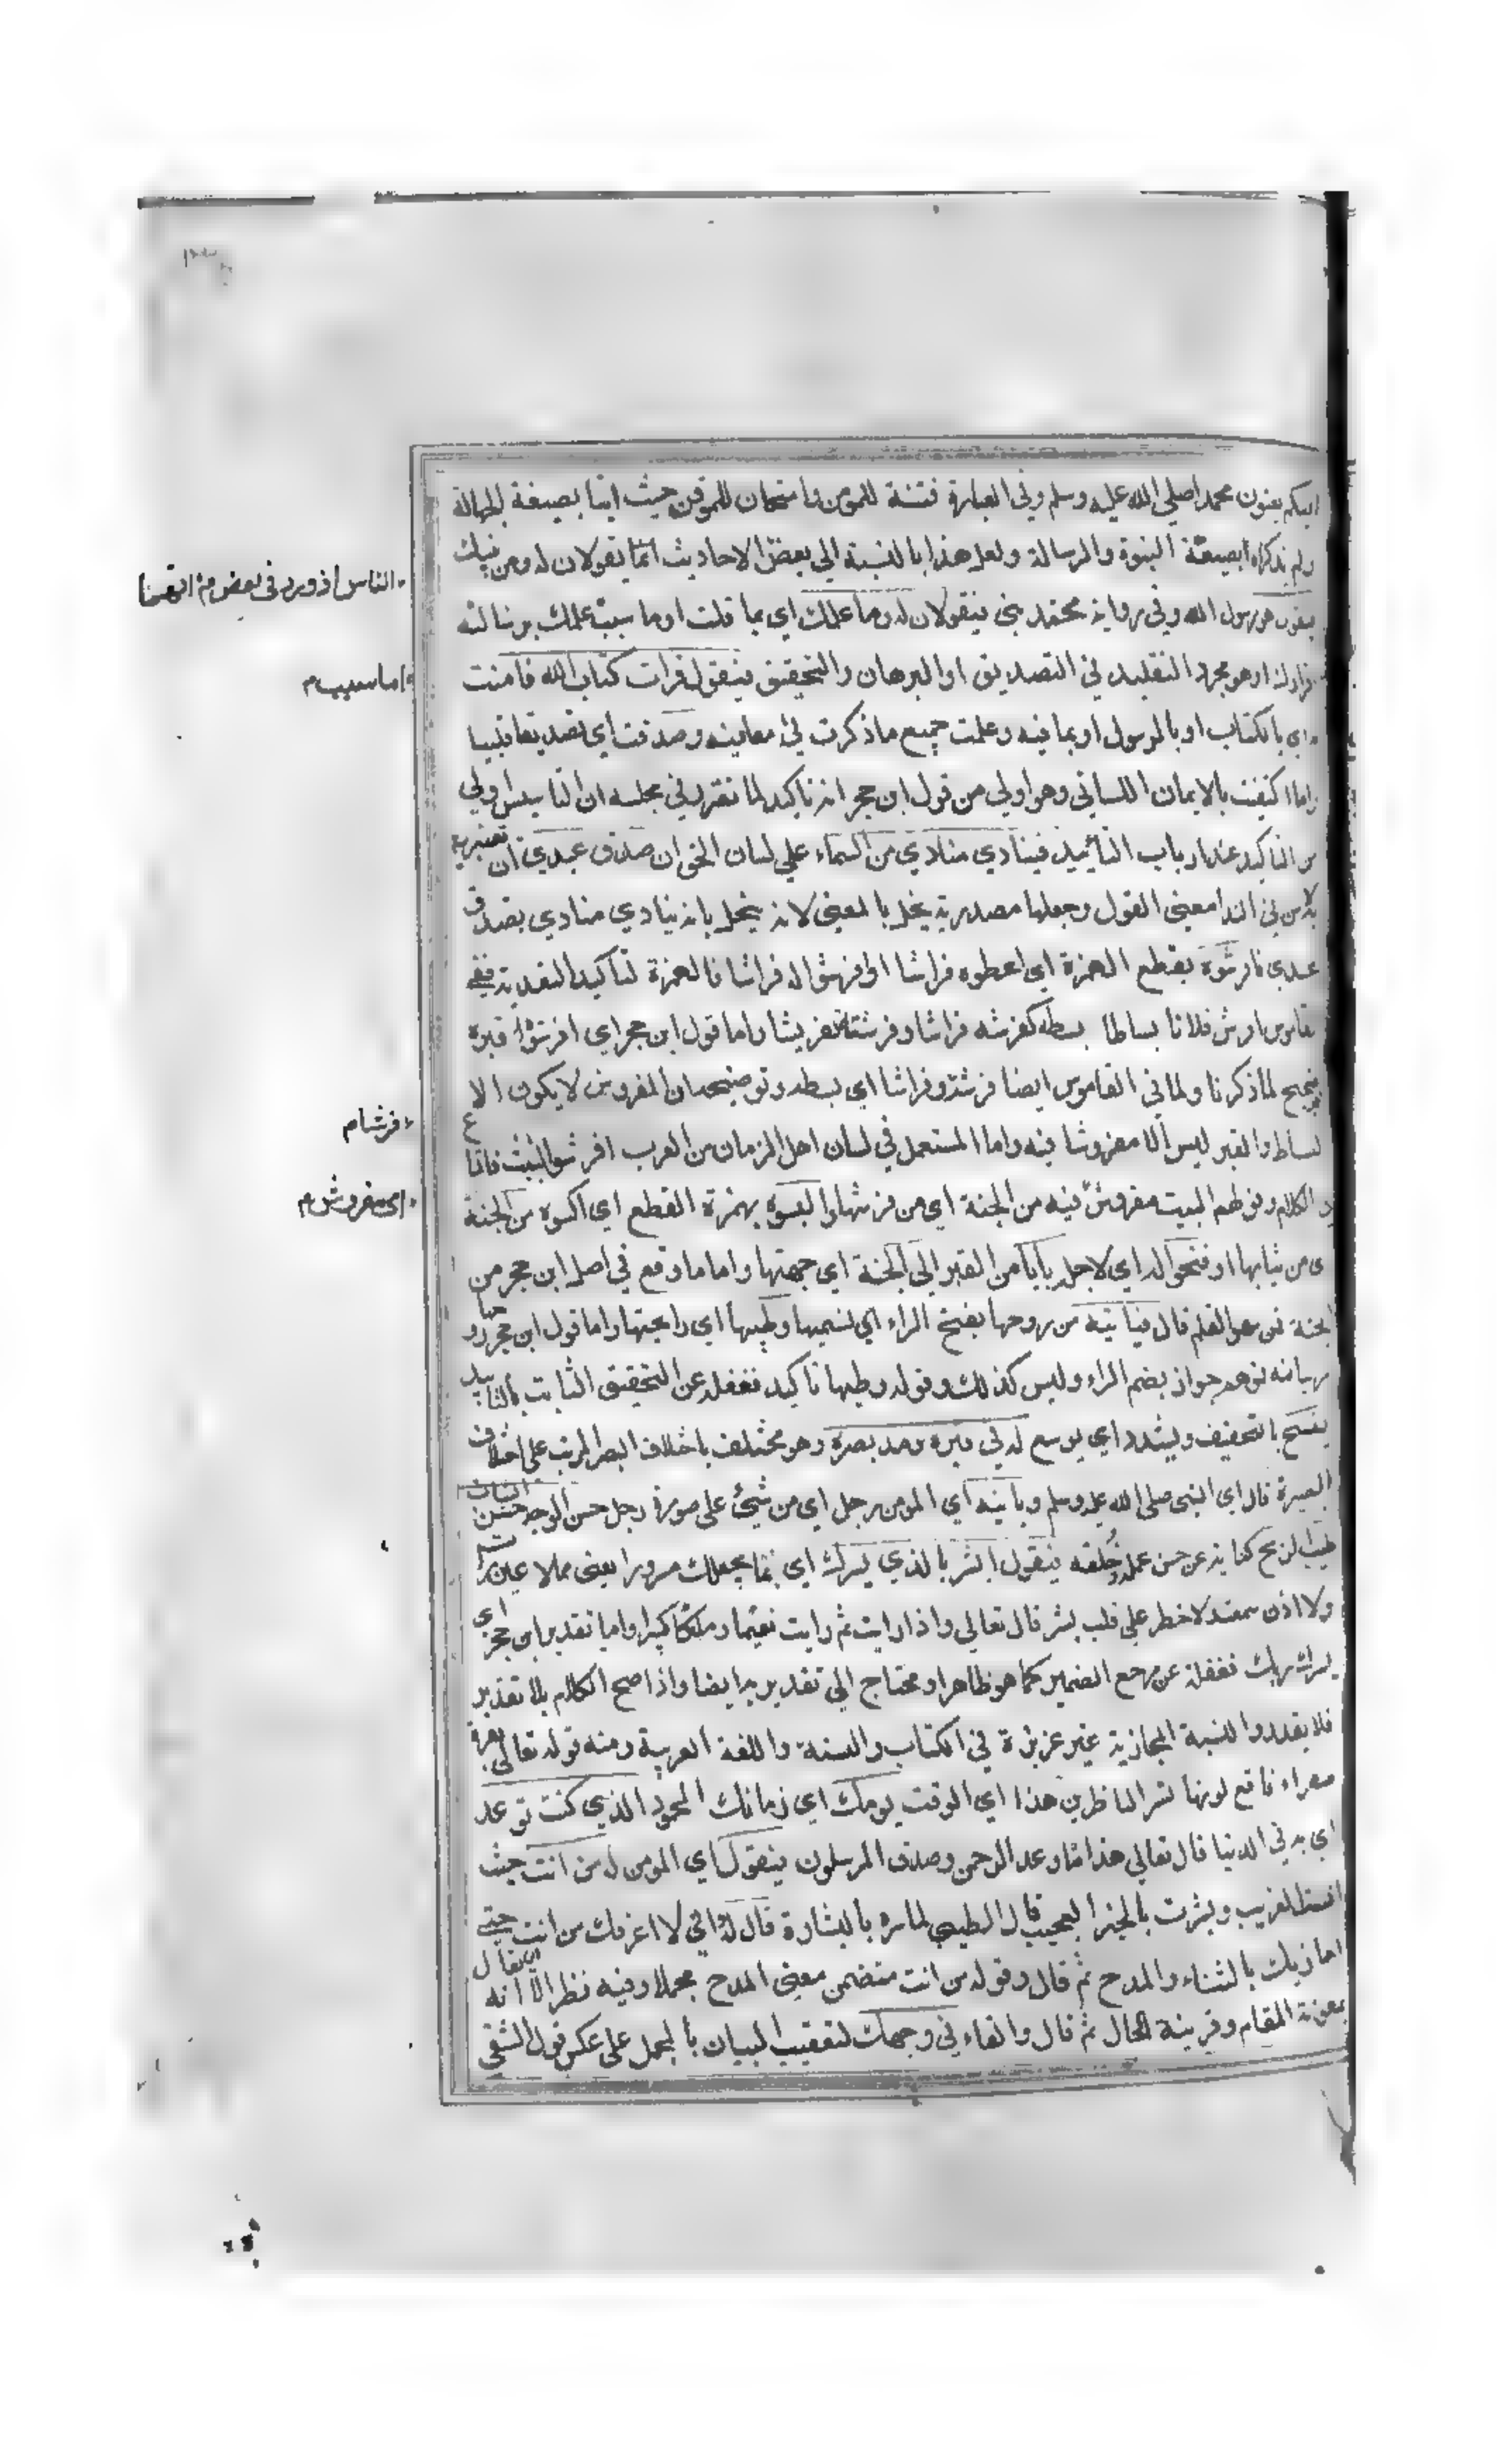 اليكم يعنون محمدا صلي الله عليه وسلم وفي العبارة فتنة للمومن وامتحان للموقن حيث اتيا بصيغة الجهالة
ولم يذكراه بصيغة النبوة والرسالة ولعل هذا بالنسبة الي بعض الاحاديث انما يقولان له ومن نبيك
فيقول هو رسول الله وفي رواية محمد نبي فيقولان له وما علمك اي بما قلت او ما سبب علمك برسالته
او هو مجرد التقليد في التصديق او البرهان والتحقيق فيقول قرات كتاب الله فامنت
اي بالكتاب او بالرسول او بما فيه وعلمت جميع ما ذكرت في معانيه وصدقت اي تصديقا قلبيا
وما اكتفيت بالايمان اللساني وهو اولي من قول ابن حجر انه تاكيد لما تقرر في محله ان التاسيس اولي
من التاكيد عند ارباب التأييد فينادي منادي من السماء علي لسان الحق ان صدق عبدي ان تفسيرية
لان في الندا معني القول وجعلها مصدرية يخل بالمعني لانه ينحل بانه ينادي منادي بصدق
عبدي فافرشوه بقطع الهمزة اي اعطوه فراشا او افرشوا له فراشا فالهمزة لتاكيد التعدية ففي
القاموس افرش فلانا بساطا بسطه كفرشه فراشا وفرشه تفريشا واما قول ابن حجر اي افرشوا قبره
صحيح لما ذكرنا ولما في القاموس ايضا فرشه فراشا اي بسطه وتوضيحه ان المفروش لا يكون الا
لبساط والقبر ليس الا مفروشا فيه واما المستعمل في لسان اهل الزمان من العرب افرشوا البيت فاتساع
في الكلام وقولهم البيت مفروش فيه من الجنة اي من فرشها والبسوه بهمزة القطع اي اكسوه من الجنة
اي من ثيابها وافتحوا له اي لاجله بابا من القبر الي الجنة اي جهتها واما ما وقع في اصل ابن حجر من
الجنة فمن سهو القلم قال فياتيه من روحها بفتح الراء اي نسيمها وطيبها اي رائحتها واما قول ابن حجر روحها
ريحانه توهم جوازه بضم الراء وليس كذلك وقوله وطيبها تاكيد فغفلة عن التحقيق الثابت بالتاييد
يفسح بالتخفيف ويشدد اي يوسع له في قبره مد بصره وهو مختلف باختلاف البصر المرتب علي اختلاف
البصيرة قال اي النبي صلي الله عليه وسلم وياتيه اي المومن رجل اي من شيئ علي صورة رجل حسن الوجه حسن الثياب
طيب الريح كناية عن حسن عمله وخلقه فيقول ابشر بالذي يسرك اي بما يجعلك مسرورا يعني مما لا عين رات
ولا اذن سمعت ولا خطر علي قلب بشر قال تعالي واذا رايت ثم رايت نعيما وملكا كبيرا واما تقدير ابن حجر اي
يسرك ربك فغفلة عن مرجع الضمير كما هو ظاهر ومحتاج الي تقدير به ايضا واذا صح الكلام بلا تقدير
فلا يقدر والنسبة المجازية غير عزيزة في الكتاب والسنة واللغة العربية ومنه قوله تعالي بقرة
صفراء فاقع لونها تسر الناظرين هذا اي الوقت يومك اي زمانك المحمود الذي كنت توعد
اي به في الدنيا قال تعالي هذا ما وعد الرحمن وصدق المرسلون فيقول اي المومن له من انت حيث
انست الغريب وبشرت بالخير العجيب قال الطيبي لما سره بالبشارة قال له اني لا اعرفك من انت حتي
اجازيك بالثناء والمدح ثم قال وقوله من انت متضمن معني المدح مجملا وفيه نظر الا انه يقال
بمعونة المقام وقرينة الحال ثم قال والفاء في وجهك لتعقيب البيان بالمجمل علي عكس قول الشقي
الناس اذ ورد في بعض
ما سبب م
فرشا م
اي مفروش م